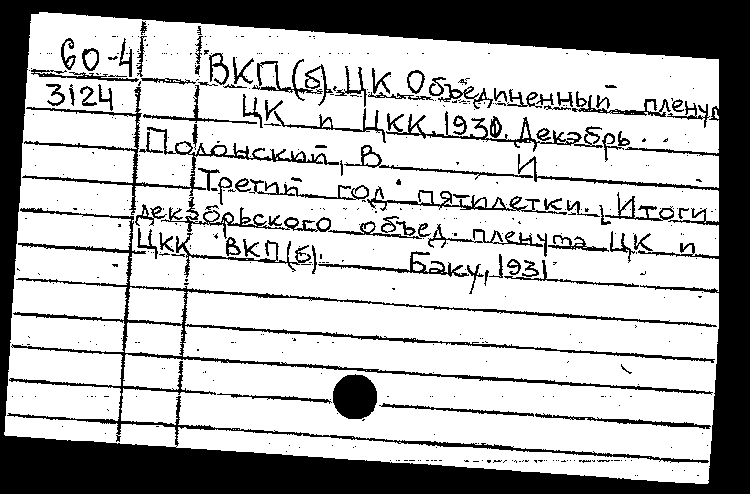 60-4
3124
ВКП(б). ЦК. Объединенный пленум
ЦК и ЦКК. 1930. Декабрь.
Полонский, В. И
Третий год пятилетки. [Итоги
декабрьского объед. пленума ЦК и
ЦКК ВКП(б). Баку, 1931